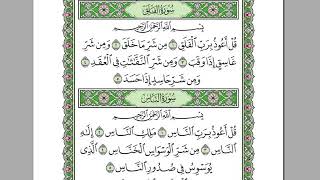 سُورَةُ الفَلَقِ
بِسْمِ اللَّهِ الرَّحْمَٰنِ الرَّحِيمِ
قُلْ أَعُوذُ بِرَبِّ الْفَلَقِ ١ مِن شَرِّ مَا خَلَقَ ٢ وَمِن شَرِّ
غَاسِقٍ إِذَا وَقَبَ ٣ وَمِن شَرِّ النَّفَّاثَاتِ فِي الْعُقَدِ ٤
وَمِن شَرِّ حَاسِدٍ إِذَا حَسَدَ ٥
سُورَةُ النَّاسِ
بِسْمِ اللَّهِ الرَّحْمَٰنِ الرَّحِيمِ
قُلْ أَعُوذُ بِرَبِّ النَّاسِ ١ مَلِكِ النَّاسِ ٢ إِلَٰهِ
النَّاسِ ٣ مِن شَرِّ الْوَسْوَاسِ الْخَنَّاسِ ٤ الَّذِي
يُوَسْوِسُ فِي صُدُورِ النَّاسِ ٥